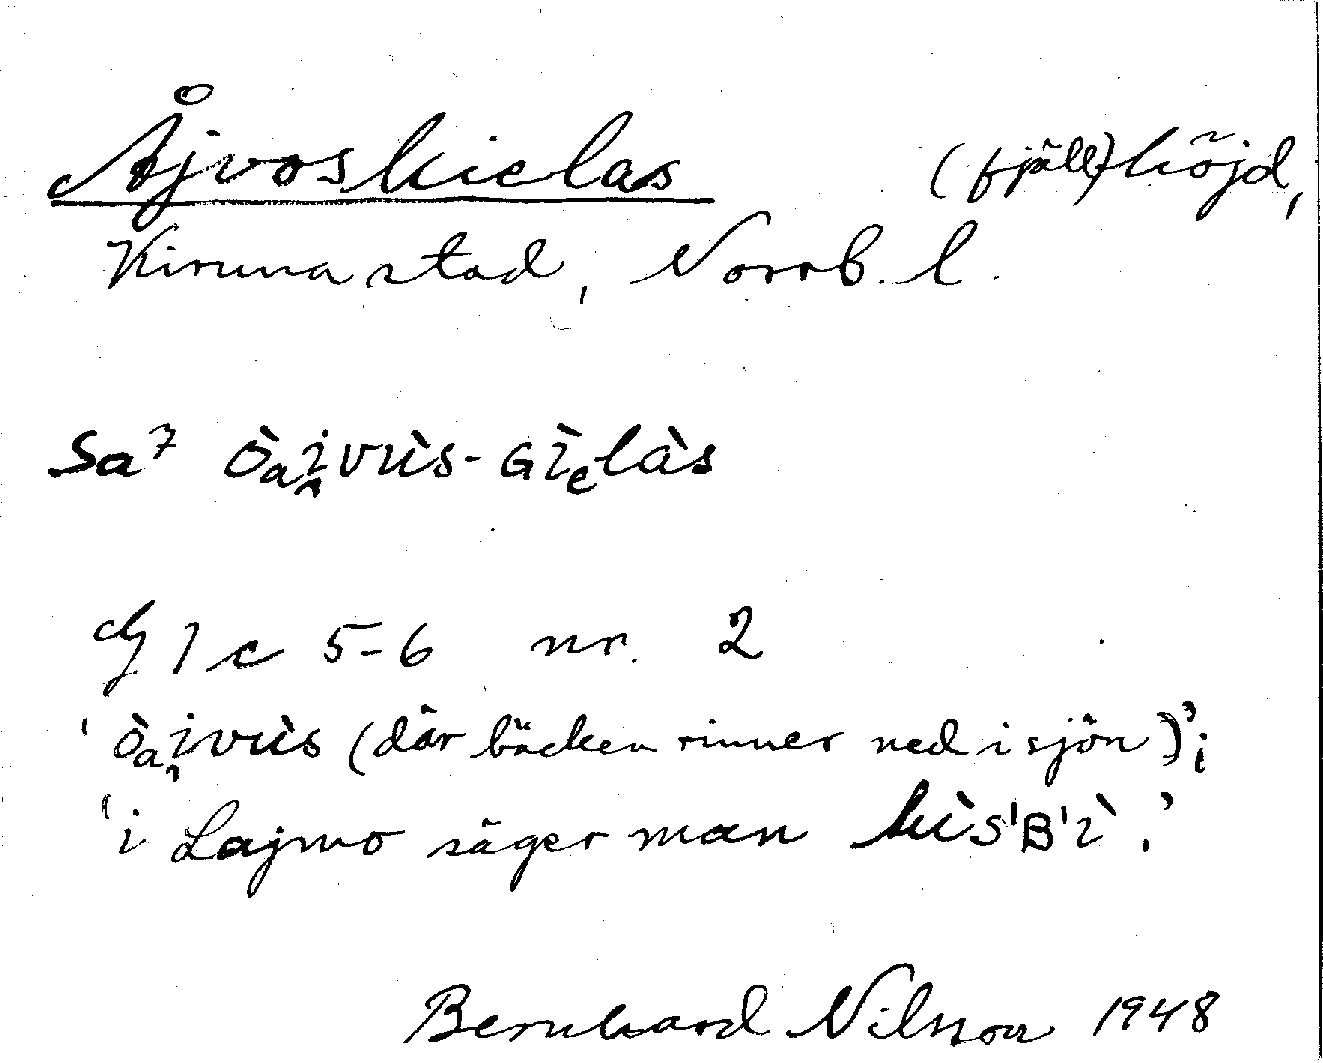 Åjvoskielas (fjäll)höjd,
Kiruna stad, Norrb. l.
Sa7 òₐi̯vùs-Gìₑlàs
GJ c 5-6 nr. 2
'òₐi̯vùs (där bäcken rinner ned i sjön)';
'i Lajnvo säger man kìs'B'ì.'
Bernhard Nilsson 1948